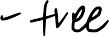 - tree